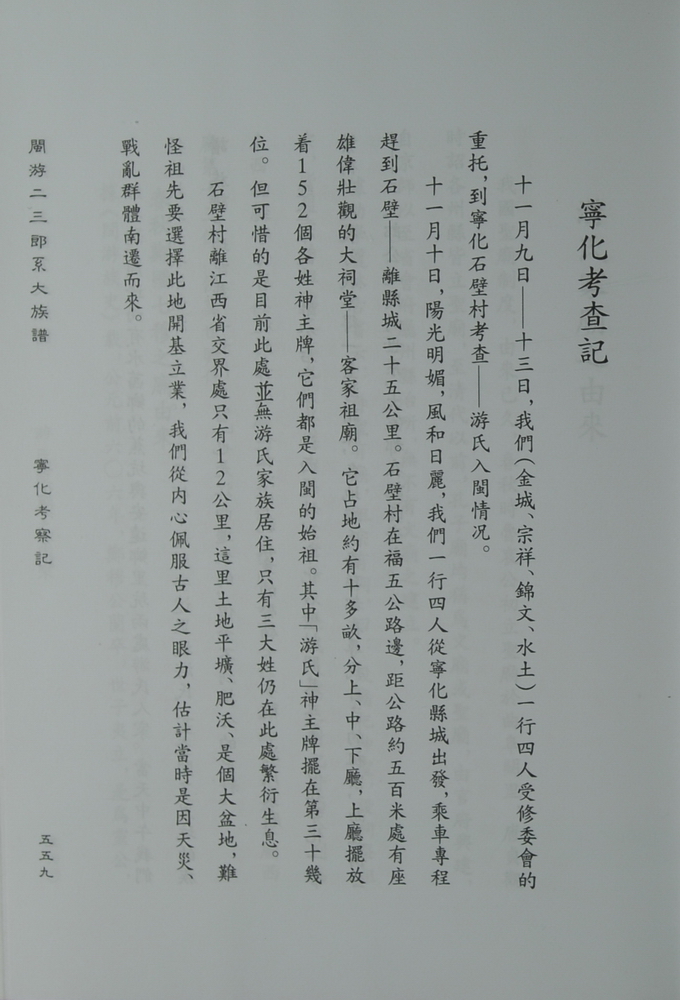 寧化考查記
十一月九日——十三日，我們（金城、宗祥、錦文、水土）一行四人受修委會的
重托，到寧化石壁村考查——游氏入閩情况。
十一月十日，陽光明媚，風和日麗，我們一行四人從寧化縣城出發，乘車專程
趕到石壁——離縣城二十五公里。石壁村在福五公路邊，距公路約五百米處有座
雄偉壯觀的大祠堂——客家祖廟。它占地約有十多畝，分上、中、下廳，上廳擺放
着152個各姓神主牌，它們都是入閩的始祖。其中「游氏」神主牌擺在第三十幾
位。但可惜的是目前此處並無游氏家族居住，只有三大姓仍在此處繁衍生息。
石壁村離江西省交界處只有12公里，這里土地平壙、肥沃、是個大盆地，難
怪祖先要選擇此地開基立業，我們從内心佩服古人之眼力，估計當時是因天災、
戰亂群體南遷而來。
閩游二三郎系大族譜
寧化考察記
五五九